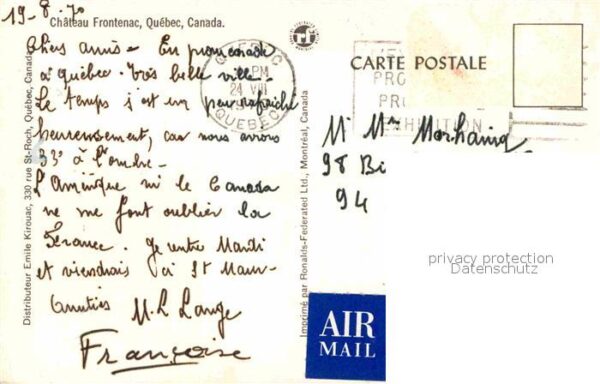 19-8-70
Château Frontenac, Québec, Canada.
Chers amis - En promenade
à Québec. Très belle ville -
Le temps s'est un peu rafraîchi
heureusement, car nous avions
33° à l'ombre -
L'Amérique ni le Canada
ne me font oublier la
France. Je rentre Mardi
et viendrais à St Maur -
Amitiés M.L Lange
Françoise
Distributeur Emile Kirouac, 330 rue St-Roch, Québec, Québec, Canada
Imprimé par Ronalds-Federated Ltd., Montréal, Canada
QUÉBEC
PM
24 VIII
QUEBEC
CARTE POSTALE
PRO
PRO
EXHIBITION
Mr Mme
98 Bi
94
privacy protection
Datenschutz
AIR
MAIL